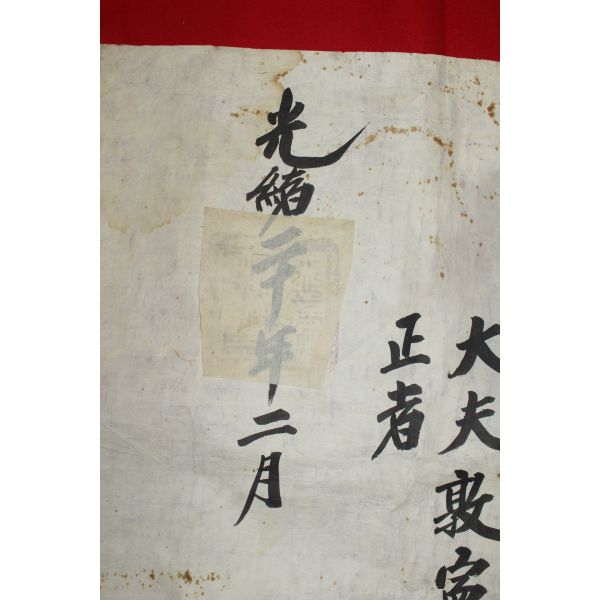 大夫敦寧
正者
光緒二十年二月